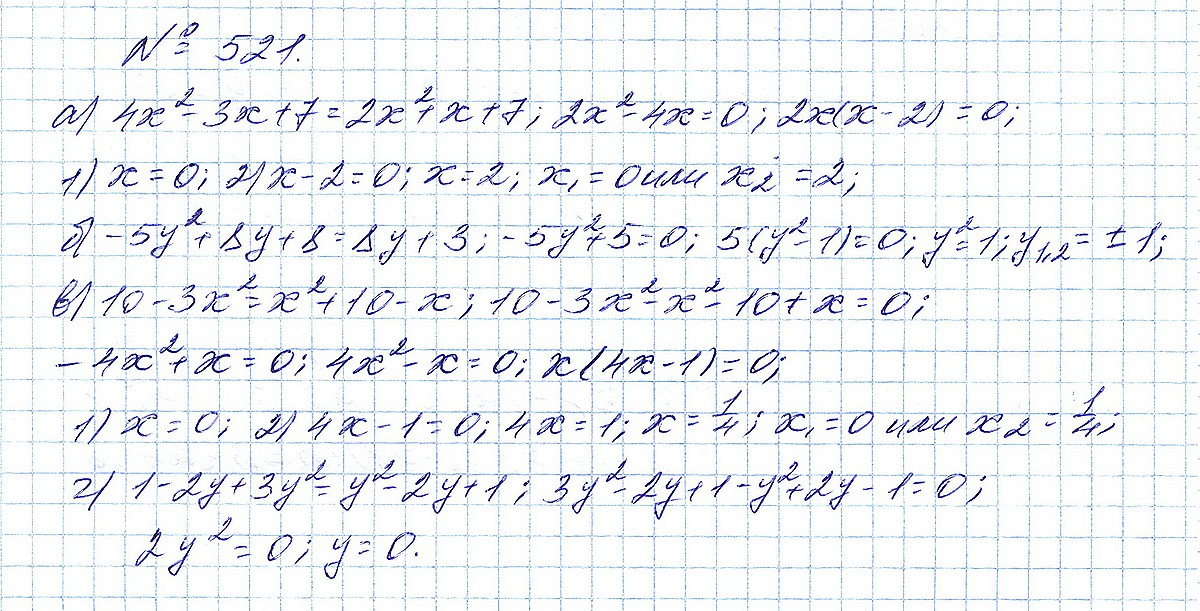 № 521.
а) 4x² - 3x + 7 = 2x² + x + 7; 2x² - 4x = 0; 2x(x - 2) = 0;
1) x = 0; 2) x - 2 = 0; x = 2; x₁ = 0 или x₂ = 2;
б) -5y² + 8y + 8 = 8y + 3; -5y² + 5 = 0; 5(y² - 1) = 0; y² = 1; y₁,₂ = ± 1;
в) 10 - 3x² = x² + 10 - x; 10 - 3x² - x² - 10 + x = 0;
- 4x² + x = 0; 4x² - x = 0; x(4x - 1) = 0;
1) x = 0; 2) 4x - 1 = 0; 4x = 1; x = 1/4; x₁ = 0 или x₂ = 1/4;
г) 1 - 2y + 3y² = y² - 2y + 1; 3y² - 2y + 1 - y² + 2y - 1 = 0;
2y² = 0; y = 0.